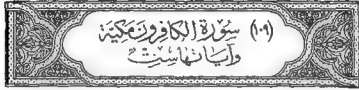 (١٠٩) سُورَةُ الكَافِرُونَ مَكِيَّة
وَآيَاتُهَا سِتٌّ